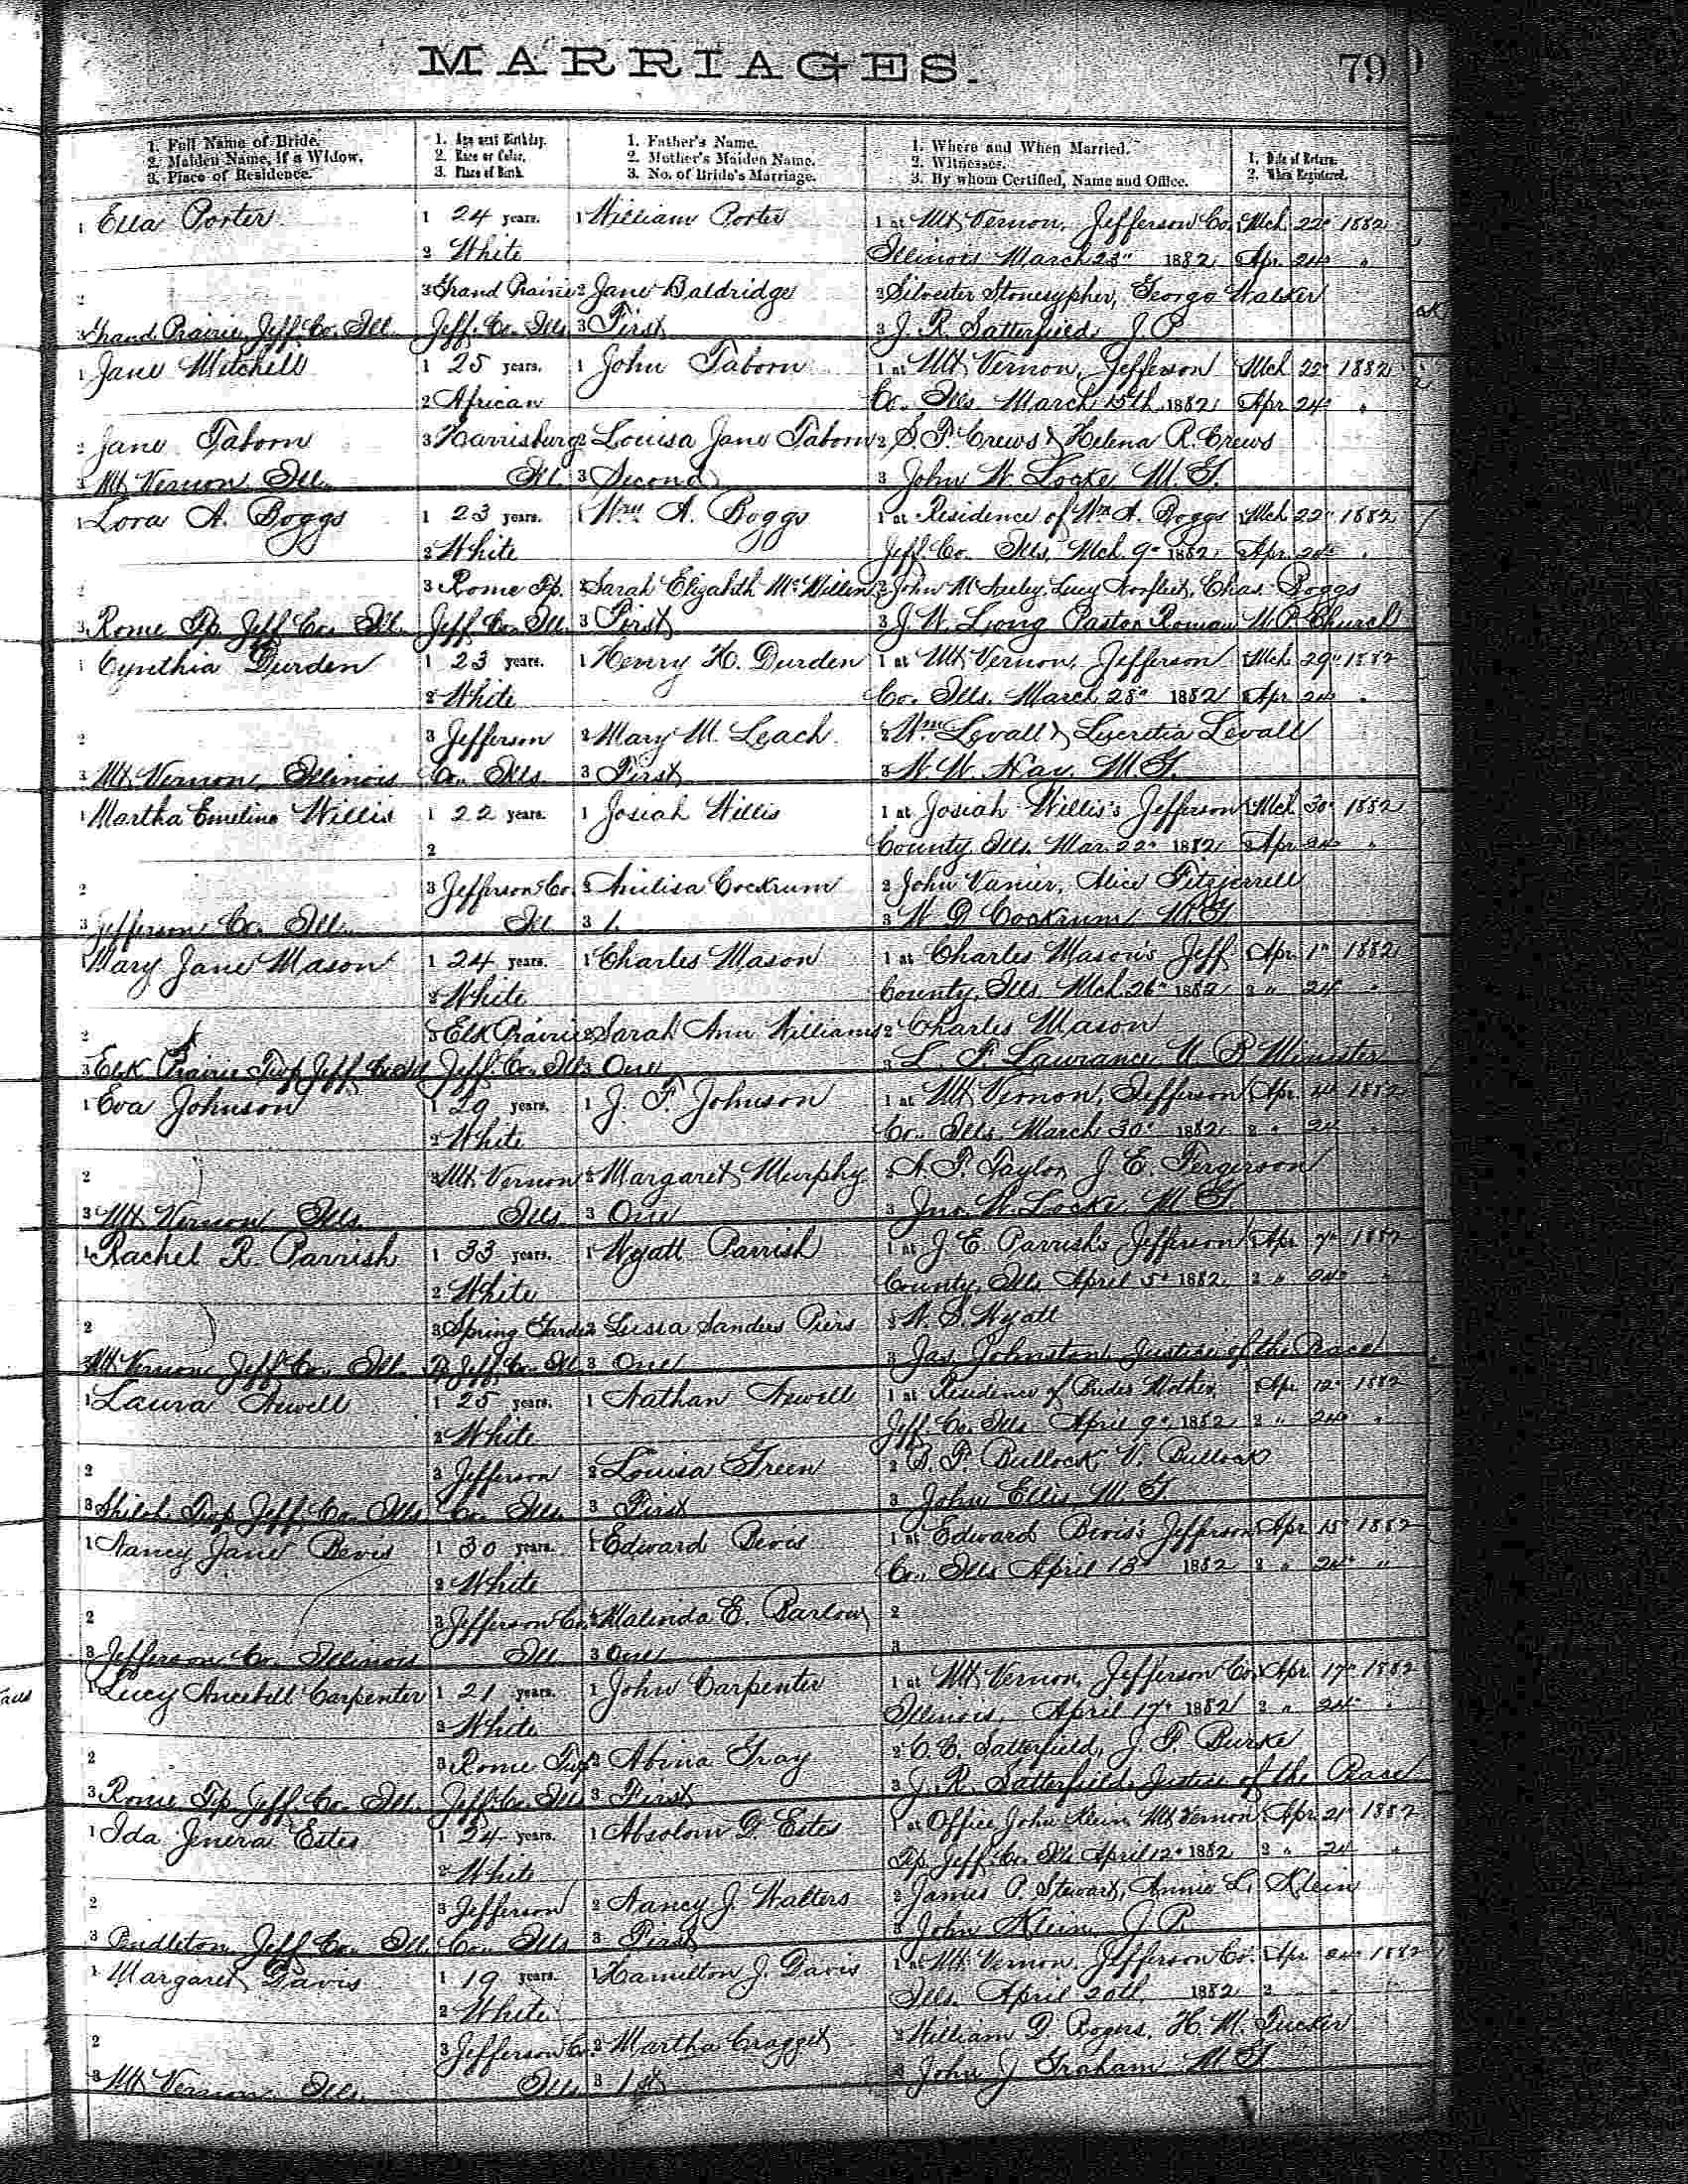 MARRIAGES.
79
1. Full Name of Bride.
2. Maiden Name, if a Widow.
3. Place of Residence.
1. Age next Birthday.
2. Race or Color.
3. Place of Birth.
1. Father's Name.
2. Mother's Maiden Name.
3. No. of Bride's Marriage.
1. Where and When Married.
2. Witnesses.
3. By whom Certified, Name and Office.
1. Date of Return.
2. When Registered.
1 Ella Porter 1 24 years. 1 William Porter 1 at Mt Vernon, Jefferson Co. 1 Mch 22d 1882
2 White Illinois March 23d 1882 Apr. 24th "
2 3 Grand Prairie 2 Jane Baldridge 2 Silvester Stonesypher, George Walker
3 Grand Prairie Jeff. Co. Ill. Jeff. Co. Ills 3 First 3 J. R. Satterfield J. P.
1 Jane Mitchell 1 25 years. 1 John Taborn 1 at Mt Vernon, Jefferson 1 Mch 22d 1882
2 African Co. Ills March 15th 1882 Apr 24th "
2 Jane Taborn 3 Harrisburg 2 Louisa Jane Taborn 2 S. P. Crews & Helena R. Crews
3 Mt Vernon Ill. Ill. 3 Second 3 John W. Locke M. G.
1 Lora A. Boggs 1 23 years. 1 Wm A. Boggs 1 at Residence of Wm A. Boggs 1 Mch 22d 1882
2 White Jeff. Co. Ills, Mch 9th 1882 Apr. 24th "
2 3 Rome Tp. 2 Sarah Elizabeth 2 John Lucy Chas. Boggs
3 Rome Tp. Jeff Co. Ill. Jeff Co. Ill. 3 First 3 J. W. Long Pastor Roman Church
1 Cynthia Durden 1 23 years. 1 Henry H. Durden 1 at Mt Vernon, Jefferson 1 Mch 29th 1882
2 White Co. Ills. March 28th 1882 Apr 24 "
2 3 Jefferson 2 Mary M. Leach 2 Wm Levall & Lucretia Levall
3 Mt Vernon, Illinois Co. Ills. 3 First 3 W. W. Hay. M. G.
1 Martha Emeline Willis 1 22 years. 1 Josiah Willis 1 at Josiah Willis's Jefferson 1 Mch 30th 1882
2 County, Ills. Mar. 22d 1882 2 Apr 24 "
2 3 Jefferson Co. 2 Cockrum 2 John Vanier, Alice Fitzjerrell
3 Jefferson Co. Ill. Ill 3 1. 3 Cockrum M. G.
1 Mary Jane Mason 1 24 years. 1 Charles Mason 1 at Charles Mason's Jeff Apr 1st 1882
2 White County, Ills. Mch 26th 1882 2 " 24 "
2 3 Elk Prairie 2 Sarah Ann Williams 2 Charles Mason
3 Elk Prairie Twp Jeff Jeff. Co. Ills 3 One 3 Lawrance Minister
1 Eva Johnson 1 29 years. 1 J. F. Johnson 1 at Mt Vernon, Jefferson Apr. 1882
2 White Co. Ills. March 30th 1882 2 " 24 "
2 3 Mt. Vernon 2 Margaret Murphy 2 Taylor, J. E. Fergerson
3 Mt Vernon Ills Ills. 3 One 3 Jno. W. Locke, M. G.
1 Rachel R. Parrish 1 33 years. 1 Wyatt Parrish 1 at J. E. Parrish's Jefferson Apr 7th 1882
2 White County, Ills April 5th 1882 2 " 24th "
2 3 Spring Garden 2 Sanders Piers 2 Wyatt
3 Mt Vernon Jeff. Co. Ill. Tp Jeff. Co. Ill. 3 One 3 Jas. Johnston Justice of the Peace
1 Laura Newell 1 25 years. 1 Nathan Newell 1 at Residence of Brides Mother, Apr 12th 1882
2 White Jeff. Co. Ills April 9th 1882 2 " 24th "
2 3 Jefferson 2 Louisa Green 2 Bullock, V. Bullock
3 Shiloh Twp Jeff. Co. Ills Co. Ills. 3 First 3 John Ellis, M. G.
1 Nancy Jane Bevis 1 30 years. 1 Edward Bevis 1 at Edward Bevis's Jefferson Apr 15th 1882
2 White Co. Ills April 13th 1882 2 " 24th "
2 3 Jefferson Co. 2 Malinda E. Barlow 2
3 Jefferson Co. Illinois Ill. 3 One 3
1 Lucy Carpenter 1 21 years. 1 John Carpenter 1 at Mt Vernon, Jefferson Co. Apr. 17th 1882
2 White Illinois, April 17th 1882 2 " 24th "
2 3 Rome Twp 2 Gray 2 C. C. Satterfield, J. F. Burke
3 Rome Tp Jeff. Co. Ill. Jeff. Co. Ill 3 First 3 J. R. Satterfield, Justice of the Peace
1 Ida Jenera Estes 1 24 years. 1 Absolom D. Estes 1 at Office John Klein Mt Vernon Apr 21st 1882
2 White Tp. Jeff. Co. Ills April 12th 1882 2 " 24 "
2 3 Jefferson 2 Nancy J. Walters 2 James P. Stewart, Annie L. Klein
3 Pendleton, Jeff Co. Ill. Co. Ills 3 First 3 John Klein, J. P.
1 Margaret Davis 1 19 years. 1 Hamilton J. Davis 1 at Mt Vernon, Jefferson Co. Apr. 1882
2 White Ills. April 20th 1882 2
2 3 Jefferson Co. 2 Martha 2 William D. Rogers, H. M. Tucker
3 Mt Vernon Ills. Ills 3 1st 3 John J. Graham M. G.